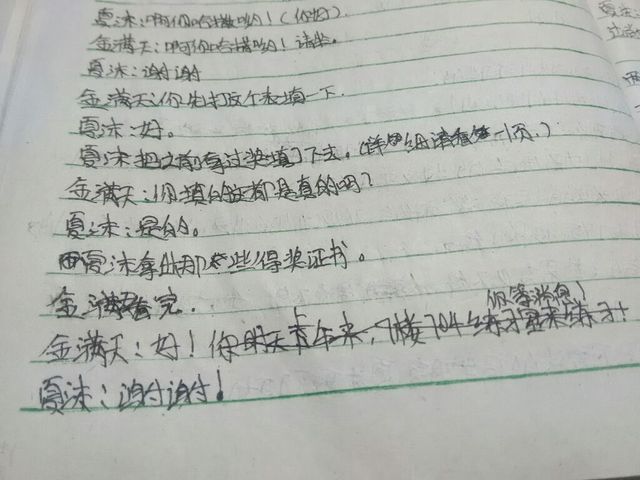 夏沫:啊你哈撒哟!(你好)
金满天:啊你哈撒哟!请坐。
夏沫:谢谢
金满天:你先把这个表填一下.
夏沫:好。
夏沫把之前拿过奖填了下去。(详细请看第一页.)
金满天:你填的证都是真的吗?
夏沫:是的。
夏沫拿出那些得奖证书。
金满天看完.
你等消息!
金满天:好!你明天上午来,7楼704练习室来练习!
夏沫:谢谢!